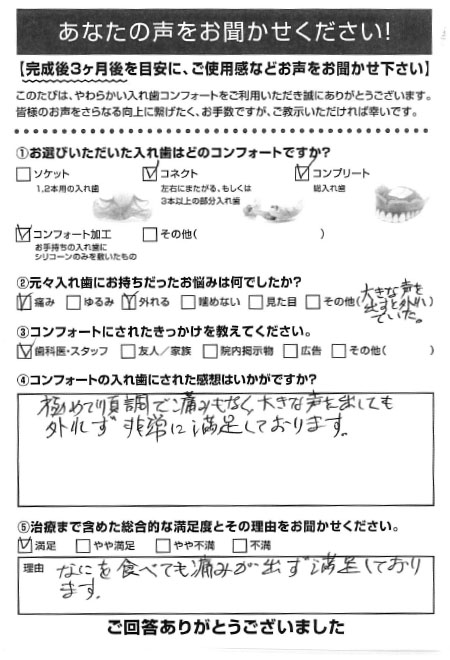 あなたの声をお聞かせください!
【完成後3ヶ月後を目安に、ご使用感などお声をお聞かせ下さい】
このたびは、やわらかい入れ歯コンフォートをご利用いただき誠にありがとうございます。
皆様のお声をさらなる向上に繋げたく、お手数ですが、ご教示いただければ幸いです。
①お選びいただいた入れ歯はどのコンフォートですか?
ソケット
1,2本用の入れ歯
コネクト
左右にまたがる、もしくは
3本以上の部分入れ歯
コンプリート
総入れ歯
コンフォート加工
お手持ちの入れ歯に
シリコーンのみを敷いたもの
その他( )
②元々入れ歯にお持ちだったお悩みは何でしたか?
痛み ゆるみ 外れる 噛めない 見た目 その他(大きな声を
出すと外れ)
ていた。
③コンフォートにされたきっかけを教えてください。
歯科医・スタッフ 友人/家族 院内掲示物 広告 その他( )
④コンフォートの入れ歯にされた感想はいかがですか?
極めて順調で痛みもなく大きな声を出しても
外れず非常に満足しております。
⑤治療まで含めた総合的な満足度とその理由をお聞かせください。
満足 やや満足 やや不満 不満
理由 なにを食べても痛みが出ず満足しており
ます。
ご回答ありがとうございました